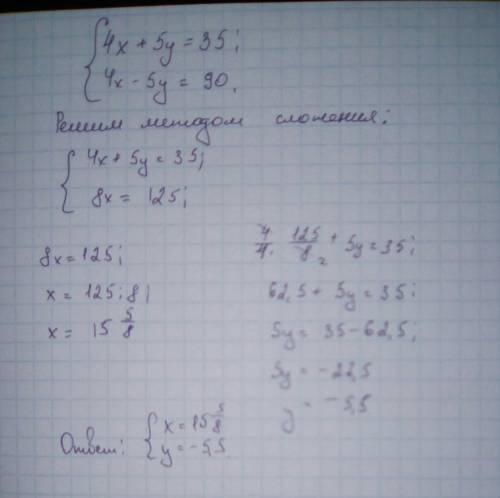 4x + 5y = 35;
4x - 5y = 90.
Решим методом сложения:
4x + 5y = 35;
8x = 125;
8x = 125;
x = 125 : 8;
x = 15 5/8
4 · 125/8 + 5y = 35;
62,5 + 5y = 35;
5y = 35 - 62,5;
5y = -22,5
y = -5,5
Ответ: x = 15 5/8
y = -5,5.